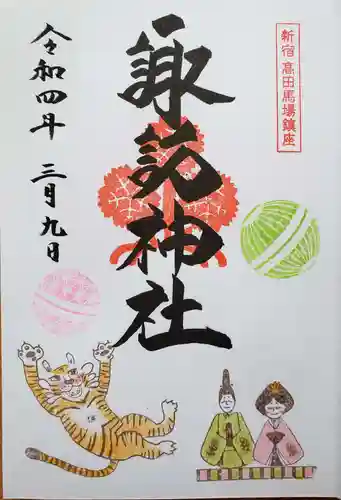 新宿 高田馬場鎮座
諏訪神社
令和四年 三月九日